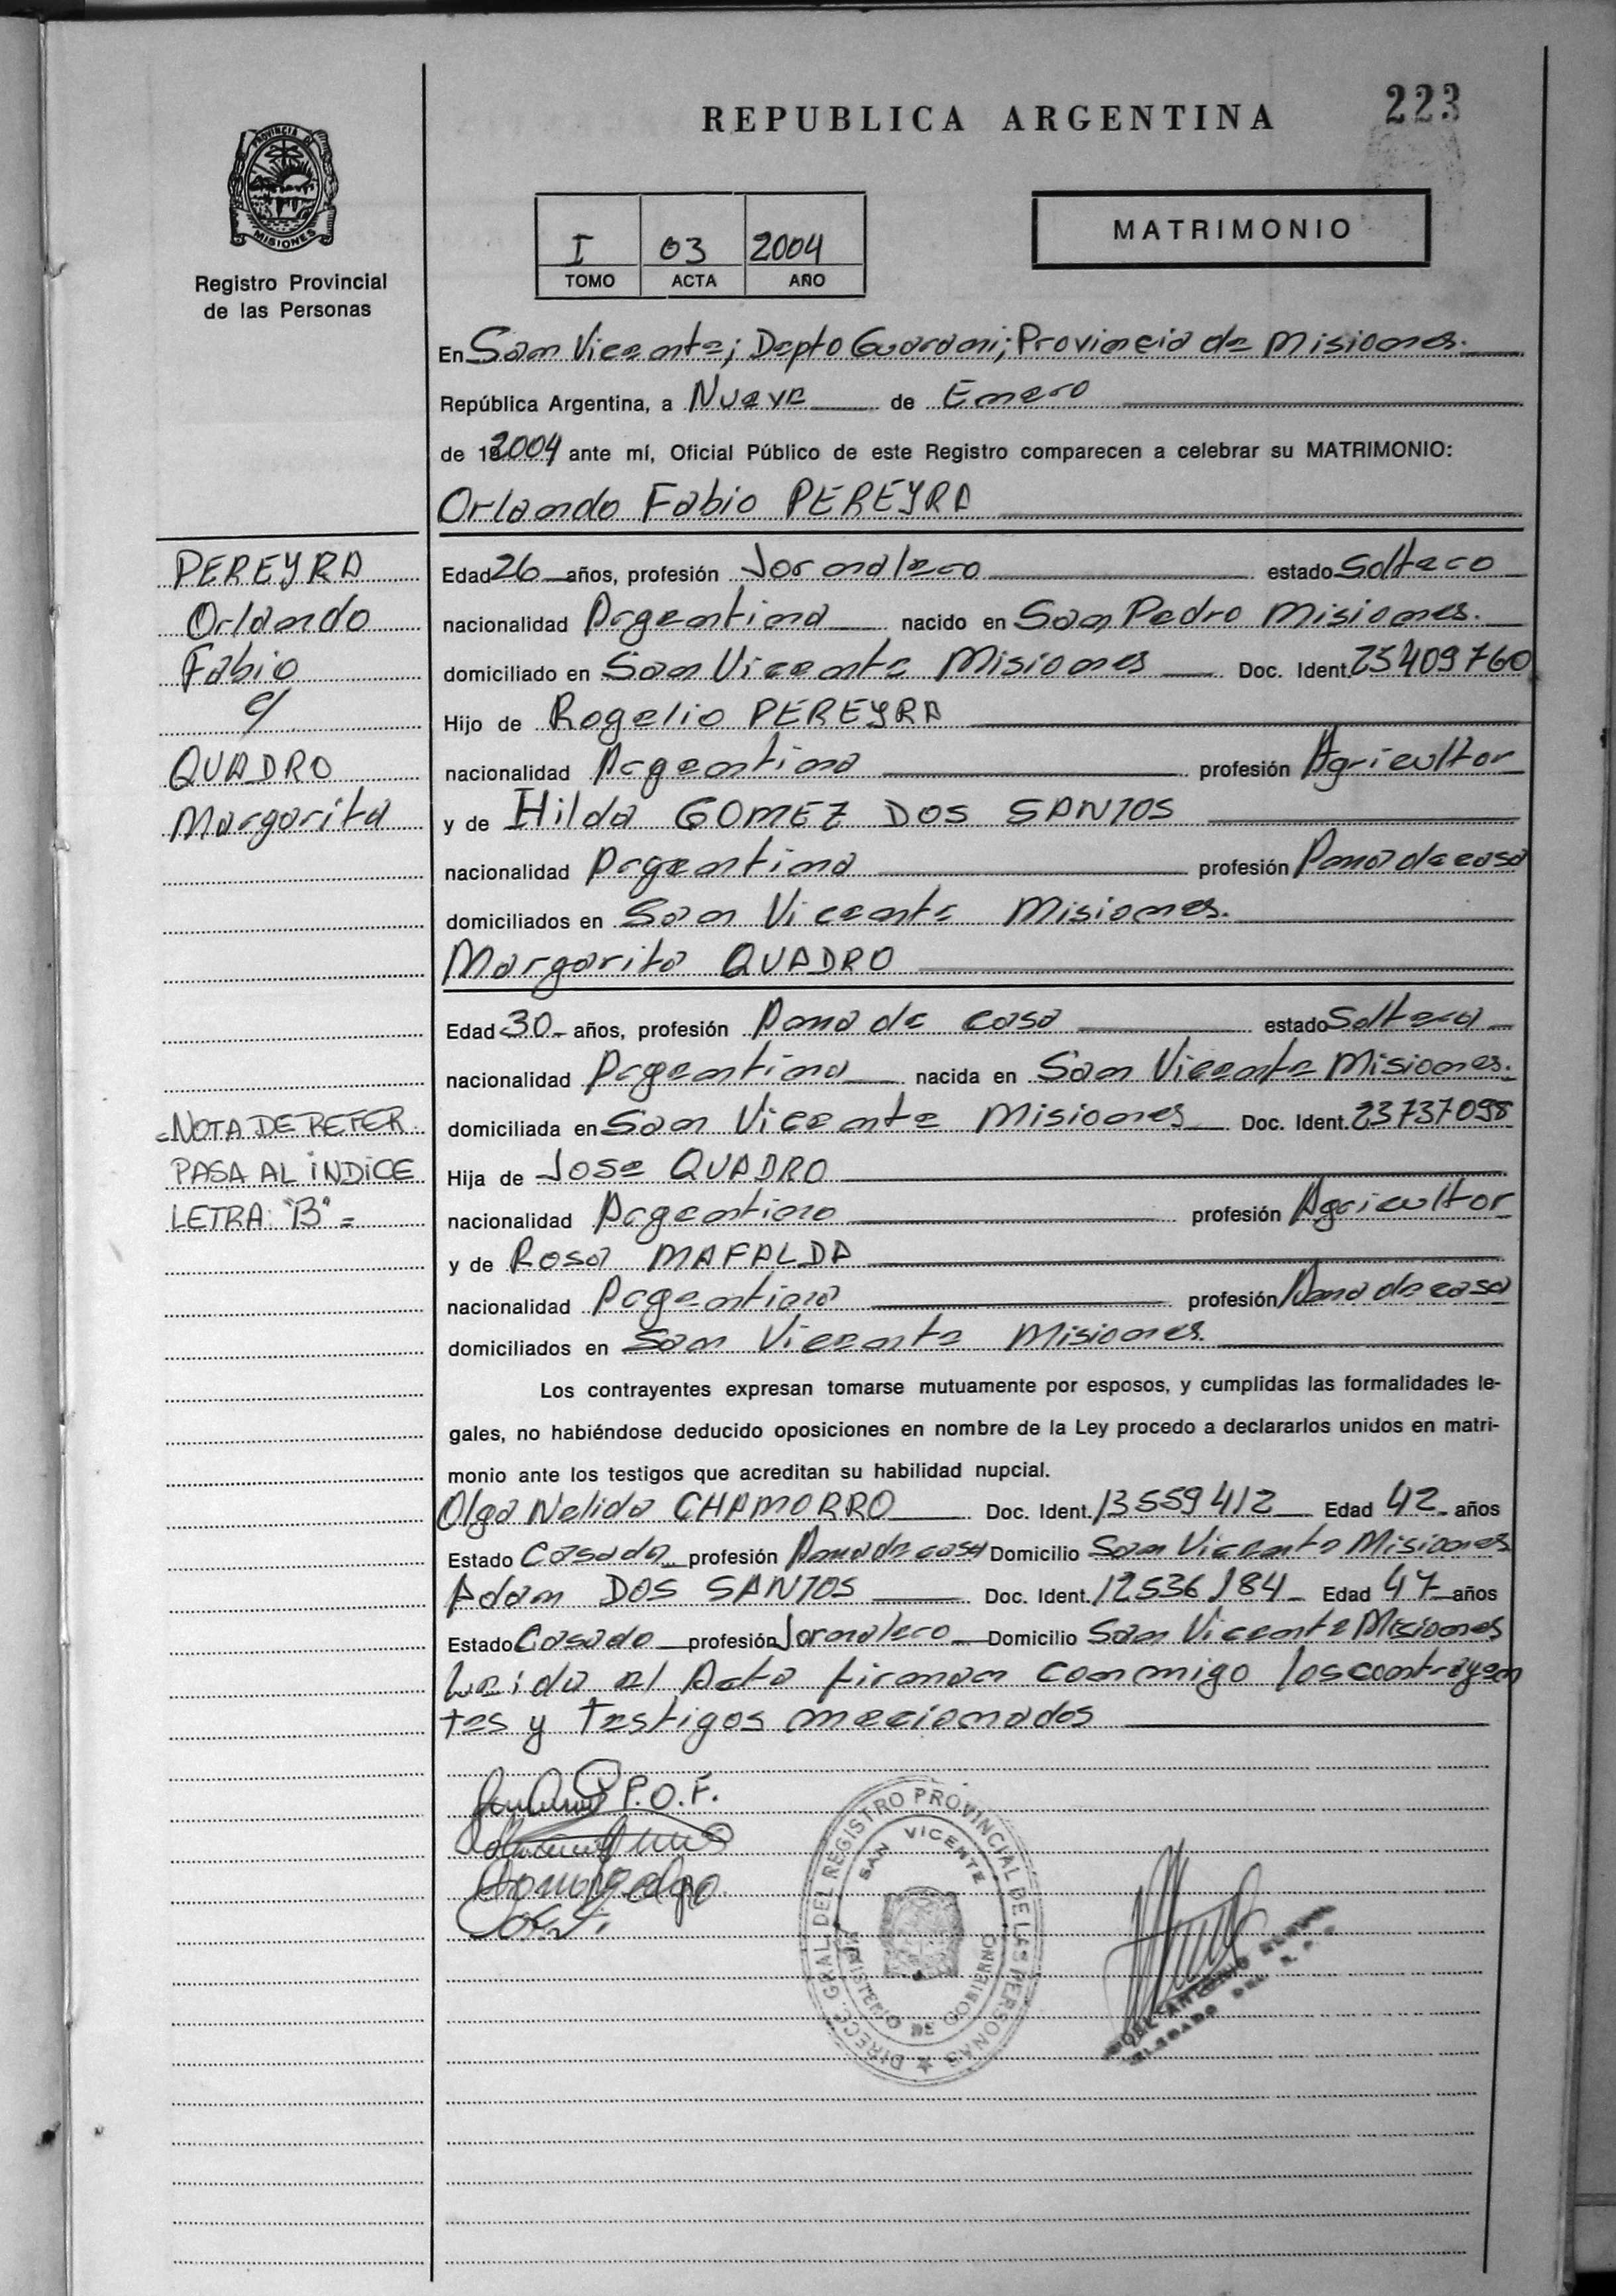 REPUBLICA ARGENTINA
223
PROVINCIA DE
MISIONES
Registro Provincial
de las Personas
I 03 2004
TOMO ACTA AÑO
MATRIMONIO
En San Vicente; Depto Guarani; Provincia de Misiones.
República Argentina, a Nueve de Enero
de 2004 ante mí, Oficial Público de este Registro comparecen a celebrar su MATRIMONIO:
Orlando Fabio PEREYRA
PEREYRA
Orlando
Fabio
c/
QUADRO
Margarita
Edad 26 años, profesión Jornalero estado Soltero
nacionalidad Argentina nacido en San Pedro Misiones.
domiciliado en San Vicente Misiones Doc. Ident. 25409760
Hijo de Rogelio PEREYRA
nacionalidad Argentina profesión Agricultor
y de Hilda GOMEZ DOS SANTOS
nacionalidad Argentina profesión Ama de casa
domiciliados en San Vicente Misiones.
Margarita QUADRO
Edad 30 años, profesión Ama de casa estado Soltera
nacionalidad Argentina nacida en San Vicente Misiones.
domiciliada en San Vicente Misiones Doc. Ident. 23737098
Hija de Jose QUADRO
nacionalidad Argentino profesión Agricultor
y de Rosa MAFALDA
nacionalidad Argentina profesión Ama de casa
domiciliados en San Vicente Misiones.
=NOTA DE REFER
PASA AL INDICE
LETRA: "B" =
Los contrayentes expresan tomarse mutuamente por esposos, y cumplidas las formalidades le-
gales, no habiéndose deducido oposiciones en nombre de la Ley procedo a declararlos unidos en matri-
monio ante los testigos que acreditan su habilidad nupcial.
Olga Nelida CHAMORRO Doc. Ident. 13559412 Edad 42 años
Estado Casada profesión Ama de casa Domicilio San Vicente Misiones
Adam DOS SANTOS Doc. Ident. 12536184 Edad 47 años
Estado Casado profesión Jornalero Domicilio San Vicente Misiones
Leida el Acta firman conmigo los contrayen
tes y testigos mecionados
P.O.F.
DIRECC. GRAL. DEL REGISTRO PROVINCIAL DE LAS PERSONAS
SAN VICENTE
MINISTERIO DE GOBIERNO
ANTONIO